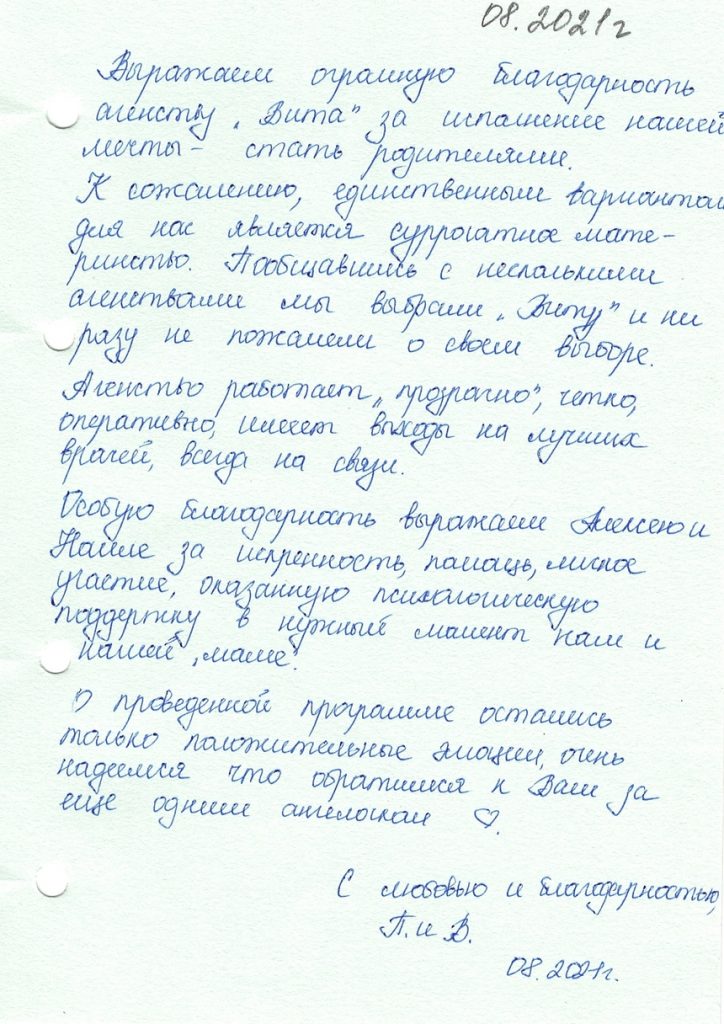 08.2021г
Выражаем огромную благодарность
агенству „Вита" за исполнение нашей
мечты - стать родителями.
К сожалению, единственным вариантом
для нас является суррогатное мате-
ринство. Пообщавшись с несколькими
агенствами мы выбрали „Виту" и ни
разу не пожалели о своем выборе.
Агенство работает „прозрачно", четко,
оперативно, имеет выходы на лучших
врачей, всегда на связи.
Особую благодарность выражаем Алексею и
Наиле за искренность, помощь, личное
участие, оказанную психологическую
поддержку в нужный момент нам и
нашей „маме".
О проведенной программе остались
только положительные эмоции, очень
надеемся что обратимся к Вам за
еще одним ангелочком ♡.
С любовью и благодарностью,
П. и В.
08.2021г.